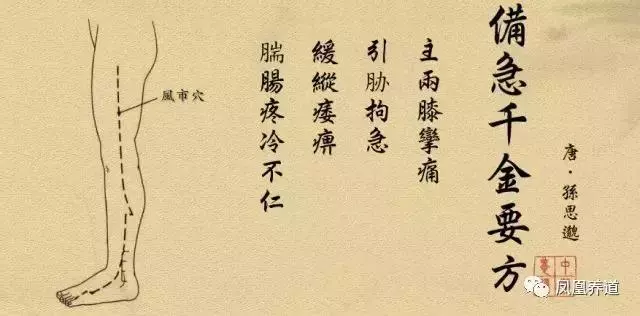 備急千金要方
唐·孫思邈
主兩膝攣痛
引胁拘急
緩縱痿痹
腨腸疼冷不仁
風市穴
凤凰养道